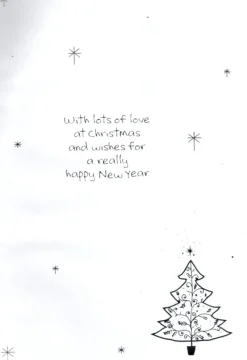 With lots of love
at Christmas
and wishes for
a really
happy New Year